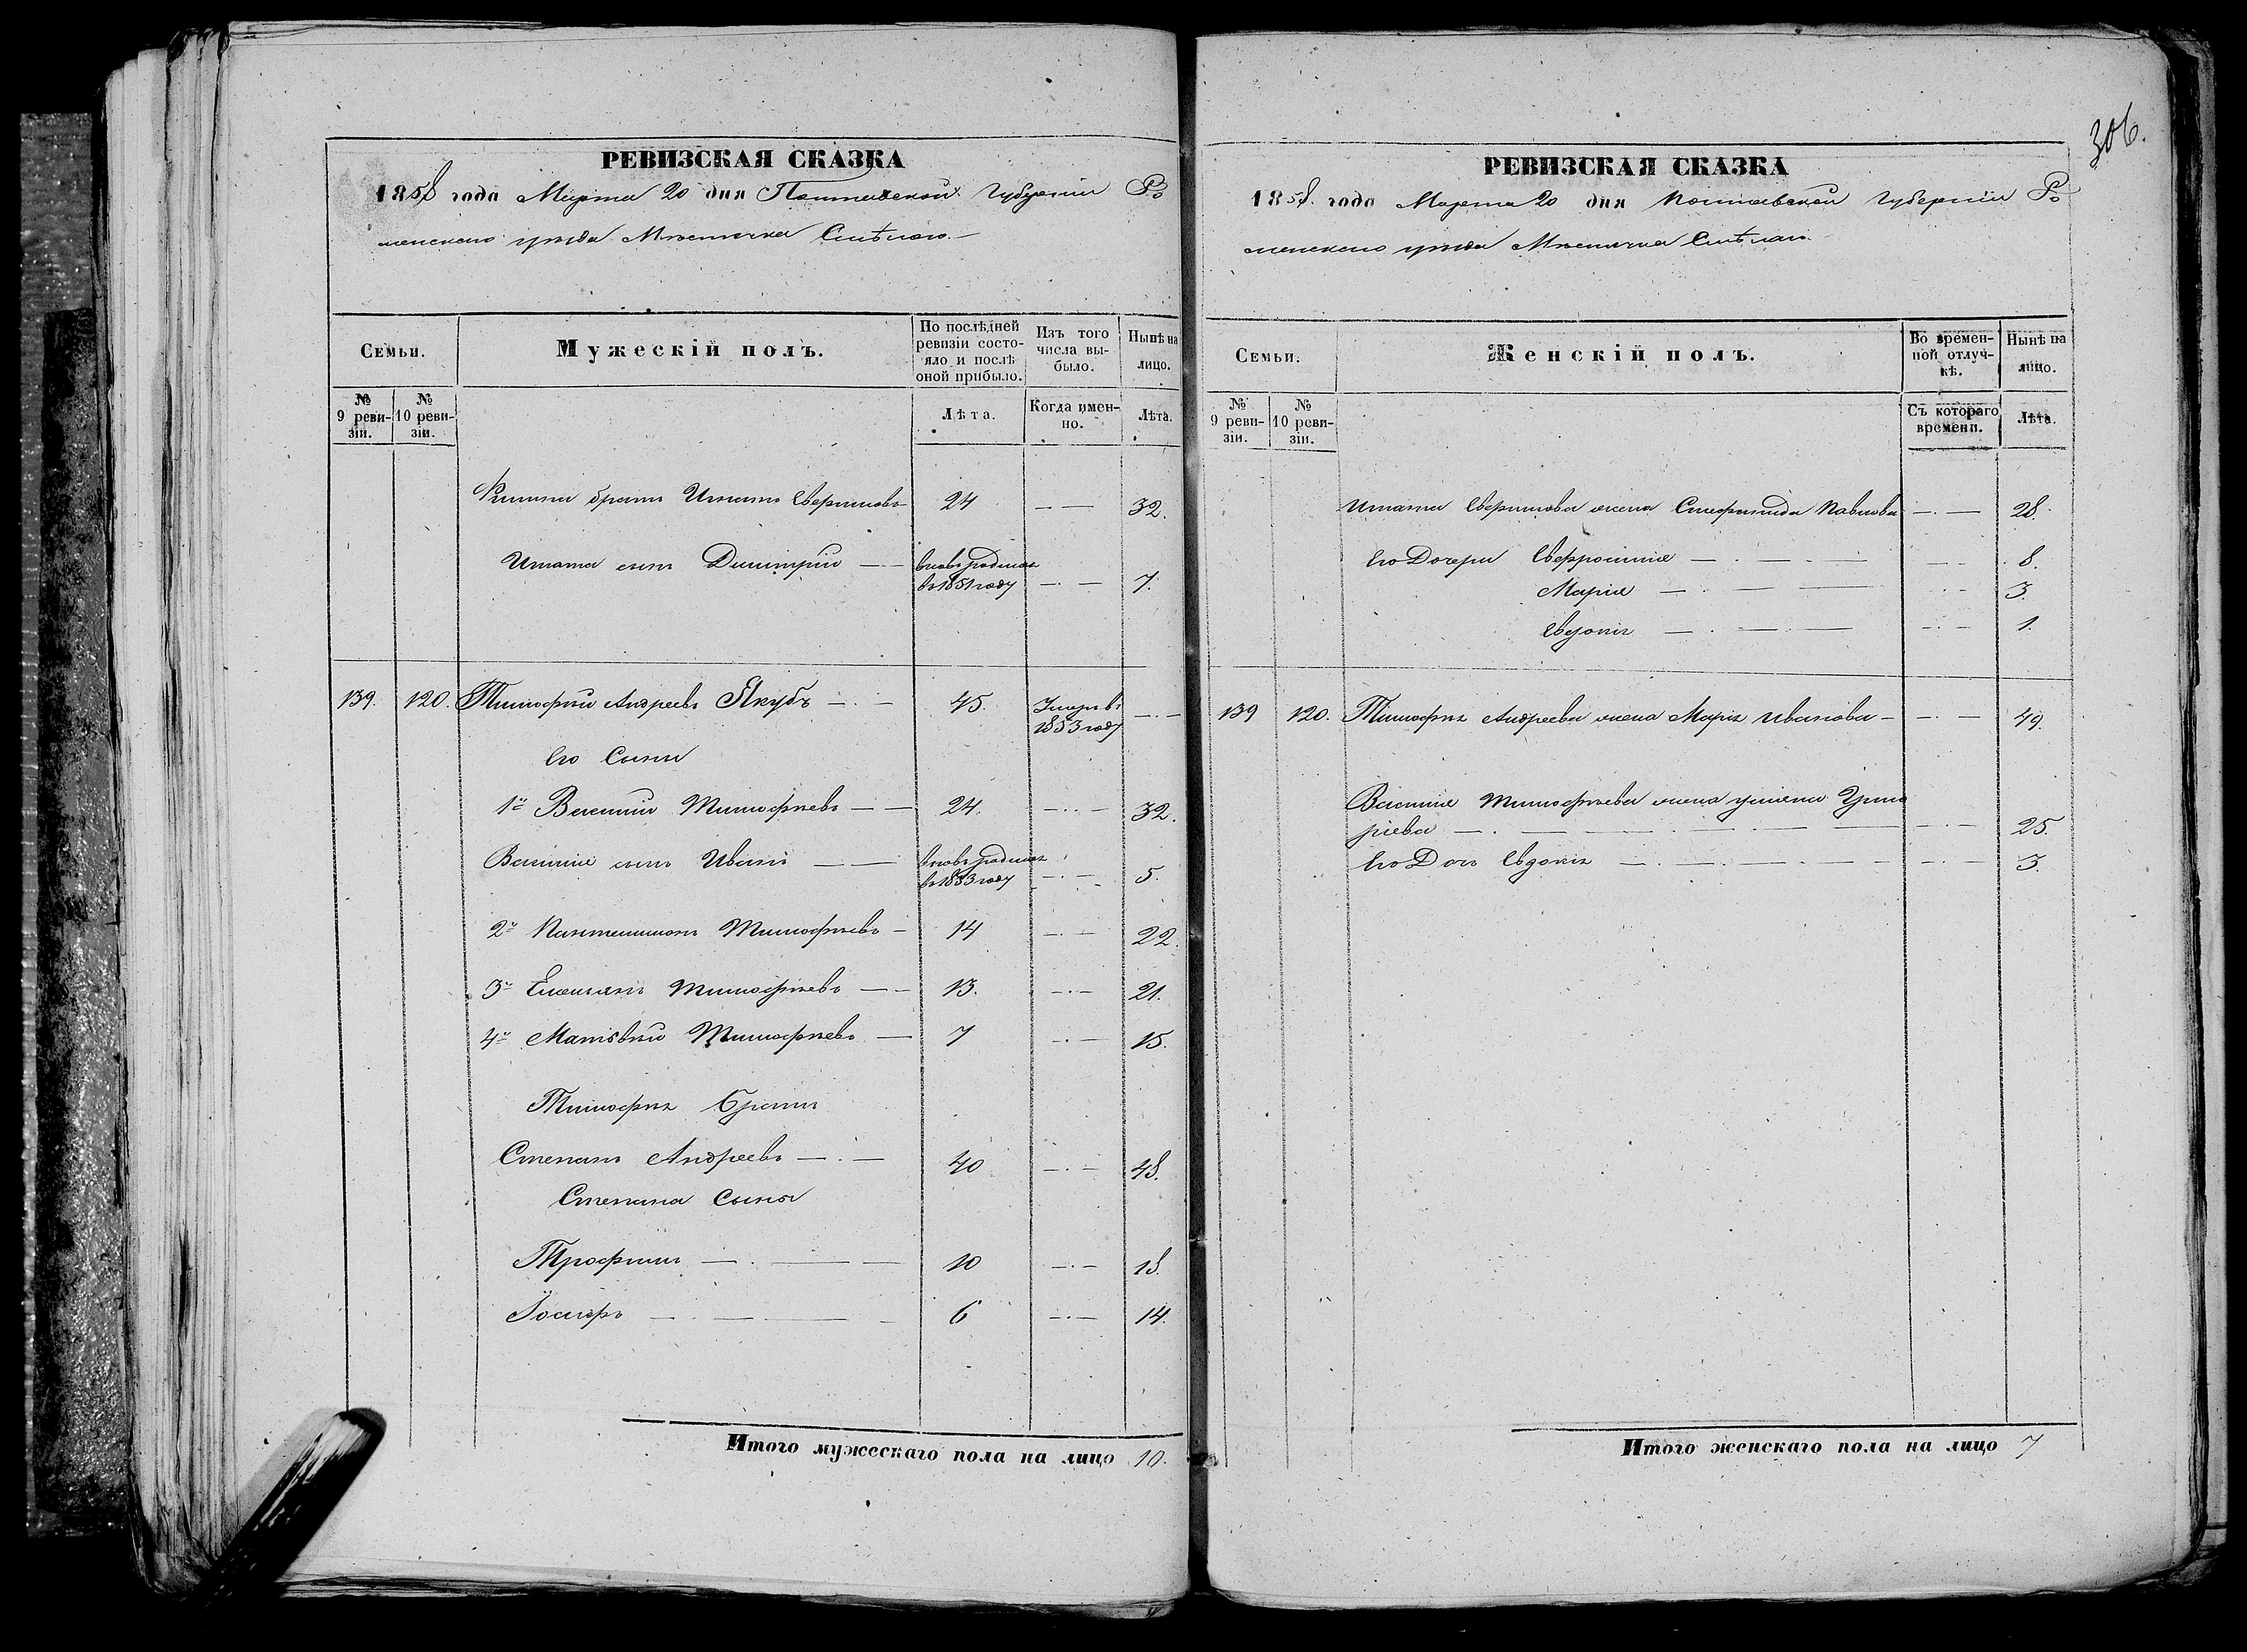 РЕВИЗСКАЯ СКАЗКА
1858 года Марта 20 дня Полтавской Губерніи Ро
менскаго уѣзда Мѣстечка Смѣлаго
Семьи.
Мужескій полъ.
По послѣдней ревизіи состояло и послѣ оной прибыло.
Изъ того числа выбыло.
Нынѣ на лицо.
№ 9 ревизіи.
№ 10 ревизіи.
Лѣта.
Когда именно.
Лѣта.
братъ Игнатъ 24 — — 32.
Игната сынъ Димитрій — — вновь рожден въ 1851 году — · — 7.
139. 120. Тимофѣй Андреевъ Якубъ — · — 45. Умеръ въ 1853 году — · —
Его Сыны
1й Василій Тимофѣевъ — — 24. — · — 32.
Василія сынъ Иванъ — — вновь рожден въ 1853 году — · — 5.
2й Пантелимонъ Тимофѣевъ — 14 — · — 22.
3й Емельянъ Тимофѣевъ — — 13. — · — 21.
4й Матвѣй Тимофѣевъ — 7 — · — 15.
Тимофѣя братъ
Степанъ Андреевъ — · — 40 — · — 48.
Степана Сыны
Трофимъ — · — — 10 — · — 18.
Іосифъ — · — — 6 — · — 14.
Итого мужескаго пола на лицо 10.
306.
РЕВИЗСКАЯ СКАЗКА
1858 года Марта 20 дня Полтавской Губерніи Ро
менскаго уѣзда Мѣстечка Смѣлаго
Семьи.
Женскій полъ.
Во временной отлучкѣ.
Нынѣ на лицо.
№ 9 ревизіи.
№ 10 ревизіи.
Съ котораго времени.
Лѣта.
Игната жена Павлова — · — 28.
Его Дочери Евфросинія — · — — 8.
Марія — · — — 3.
Евдокія — · — — 1.
139 120. Тимофѣя Андреева жена Марія Иванова — — · — 49.
Василія Тимофѣева жена Григо
рьева — · — — · — 25.
Его Дочь Евдокія — · — — · — 3.
Итого женскаго пола на лицо 7